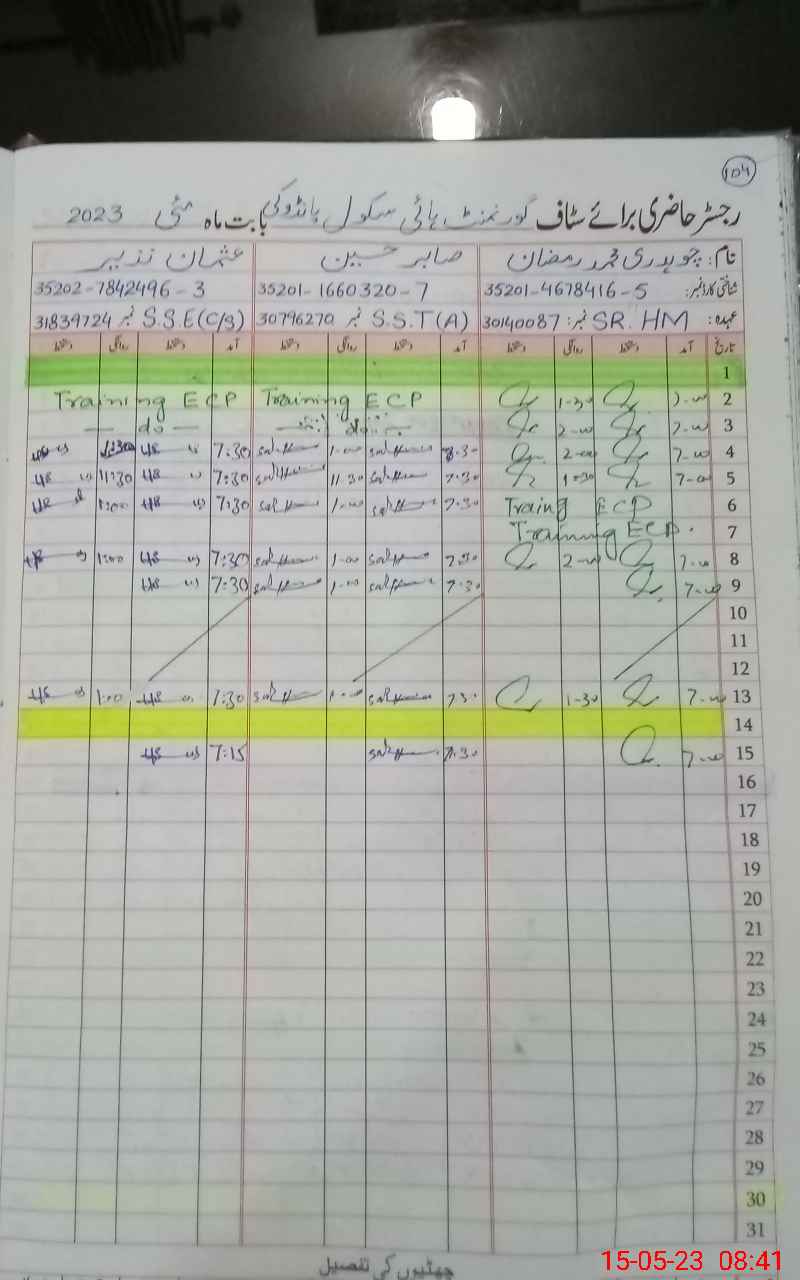 104
رجسٹر حاضری برائے سٹاف گورنمنٹ ہائی سکول پانڈوکی بابت ماہ مئی 2023
نام: چوہدری محمد رمضان صابر حسین عثمان نذیر
شناختی کارڈ نمبر: 35201-4678416-5 35201-1660320-7 35202-7842496-3
عہدہ: SR. HM نمبر: 30140087 S.S.T(A) نمبر 30796270 S.S.E(C/S) نمبر 31839724
تاریخ آمد دستخط روانگی دستخط آمد دستخط روانگی دستخط آمد دستخط روانگی دستخط
1
2 7-00 1-30 Training ECP Training ECP
3 7-00 2-00 — do — — do —
4 7-00 2-00 7.30 1-00 7:30
5 7-00 1-30 7.30 11.30 7:30 11:30
6 Training ECP 7.30 1-00 7:30 1:00
7 Training ECP.
8 7-00 2-00 7.30 1-00 7:30 1:00
9 7-00 7.30 1-00 7:30
10
11
12
13 7-00 1-30 7.30 1-00 7:30 1:00
14
15 7-00 7.30 7:15
16
17
18
19
20
21
22
23
24
25
26
27
28
29
30
31
چھٹیوں کی تفصیل
15-05-23 08:41